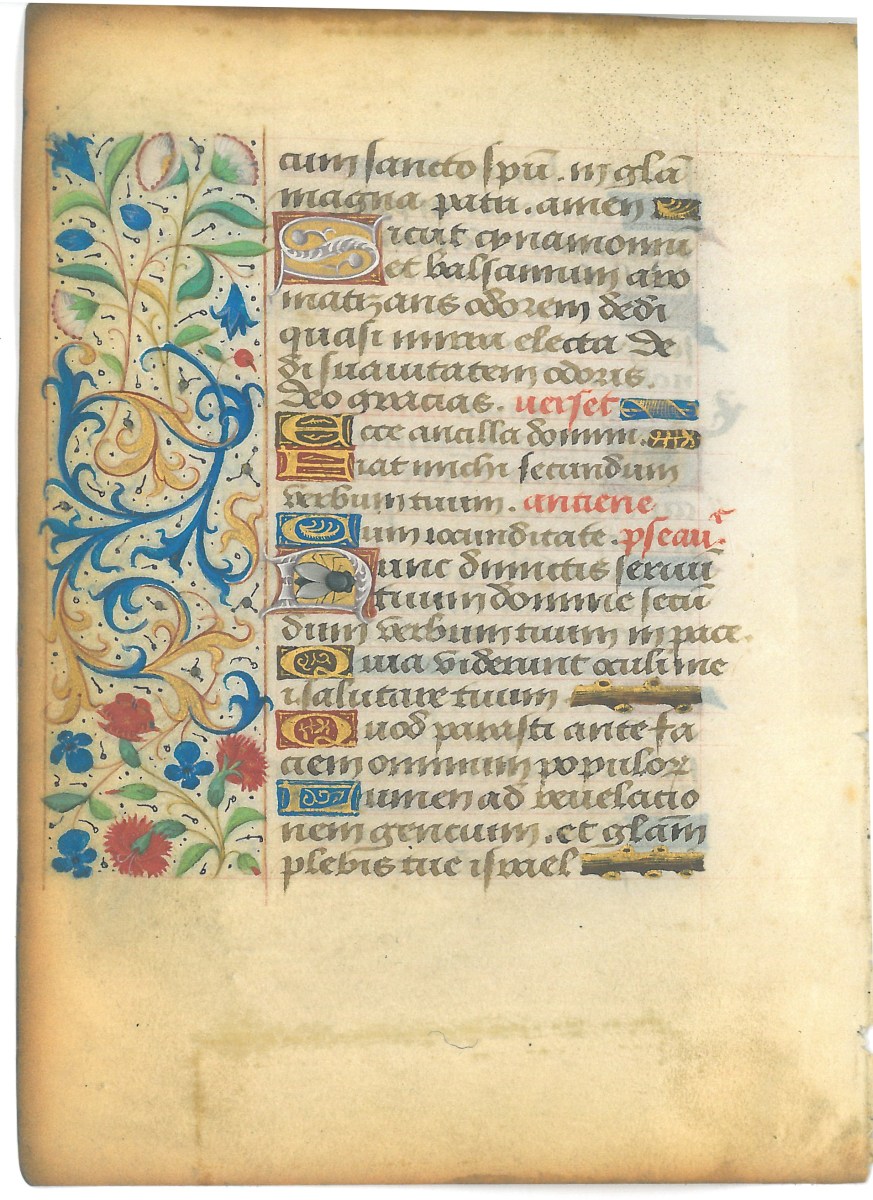 cum sancto spū. in glā
magna patri. amen
Sicut cynamomū
et balsamum aro
matizans odorem dedi
quasi mirra electa de
di suavitatem odoris.
Deo gracias. verset
Ecce ancilla domini.
Fiat michi secundum
verbum tuum. antiene
Cum iocundicate. pseaū.
Nunc dimictis servū
tuum domine secū
dum verbum tuum in pace.
Quia viderunt oculi me
i salutare tuum
Quod parasti ante fa
ciem omnium populor
Lumen ad revelacio
nem gencium. et glām
plebis tue israel